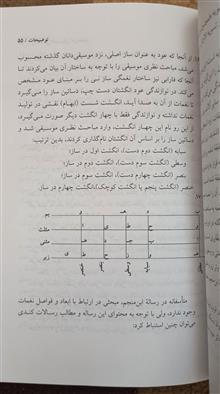 توضیحات / ۵۵
از آنجا که عود به عنوان ساز اصلی، نزد موسیقی‌دانان گذشته محسوب
می‌شد، مباحث نظری موسیقی را با توجه به ساختار آن بیان می‌کردند تا
آنجا که فارابی نیز ساختار نغمگی ساز نی را بر مبنای عود مشخص
می‌کند. در نوازندگی عود انگشتان دست چپ، دساتین ساز را می‌گیرد
تا نغمات از آن به صدا آید. انگشت شست (ابهام) نقشی در تولید
نغمات نداشته و نوازندگی فقط با چهار انگشت دیگر صورت می‌گیرد.
از این رو نام این چهار انگشت، وارد مباحث نظری موسیقی شد و
دساتین ساز را بر اساس آن انگشتان نام‌گذاری کردند. بدین ترتیب:
سبابه (انگشت دوم در دست)، انگشت اول در ساز؛
وسطی (انگشت سوم در دست)، انگشت دوم در ساز؛
بنصر (انگشت چهارم در دست)، انگشت سوم در ساز؛
خنصر (انگشت پنجم یا انگشت کوچک)، انگشت چهارم در ساز
بم
مثلث
مثنی
زیر
متأسفانه در رسالهٔ ابن‌منجم، مبحثی در ارتباط با ابعاد و فواصل نغمات
وجود ندارد، ولی با توجه به محتوای این رساله و مطالب رسالات کندی
می‌توان چنین استنباط کرد: